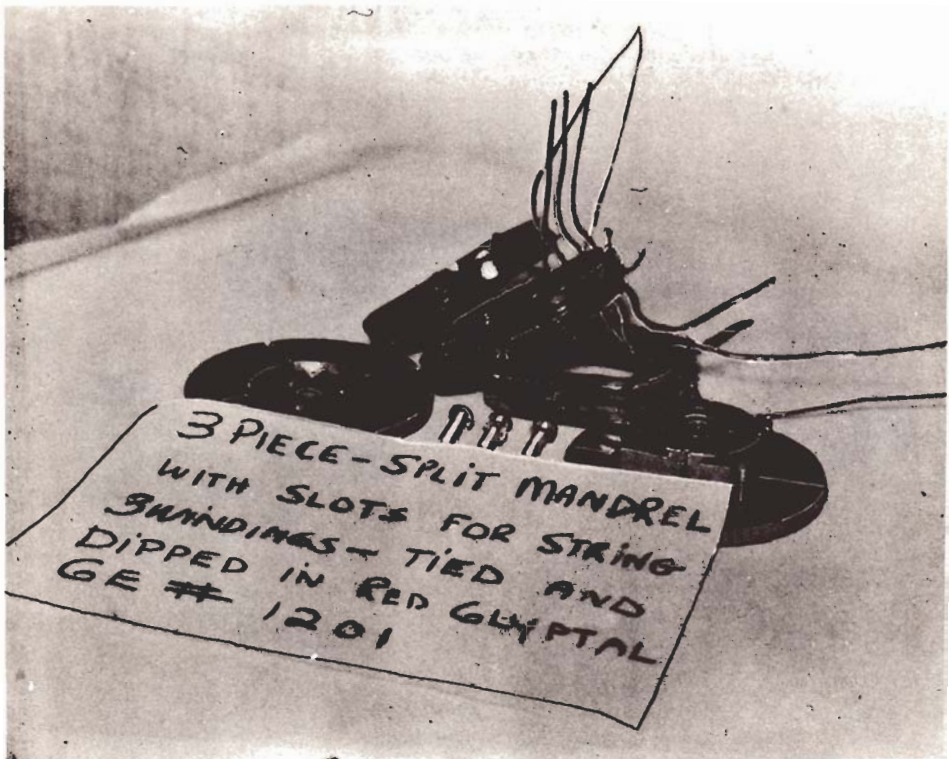 3 PIECE - SPLIT MANDREL
WITH SLOTS FOR STRING
3 WINDINGS - TIED AND
DIPPED IN RED GLYPTAL
GE # 1201